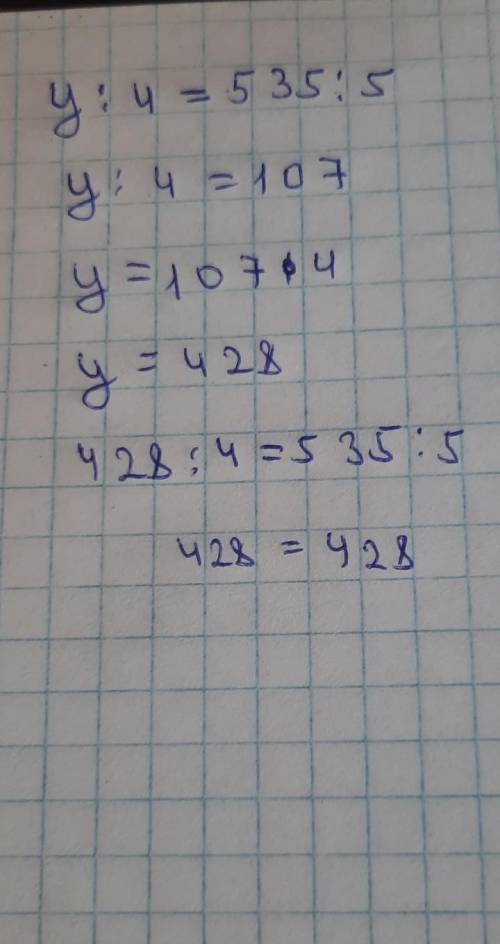 у : 4 = 535 : 5
у : 4 = 107
у = 107 • 4
у = 428
428 : 4 = 535 : 5
428 = 428